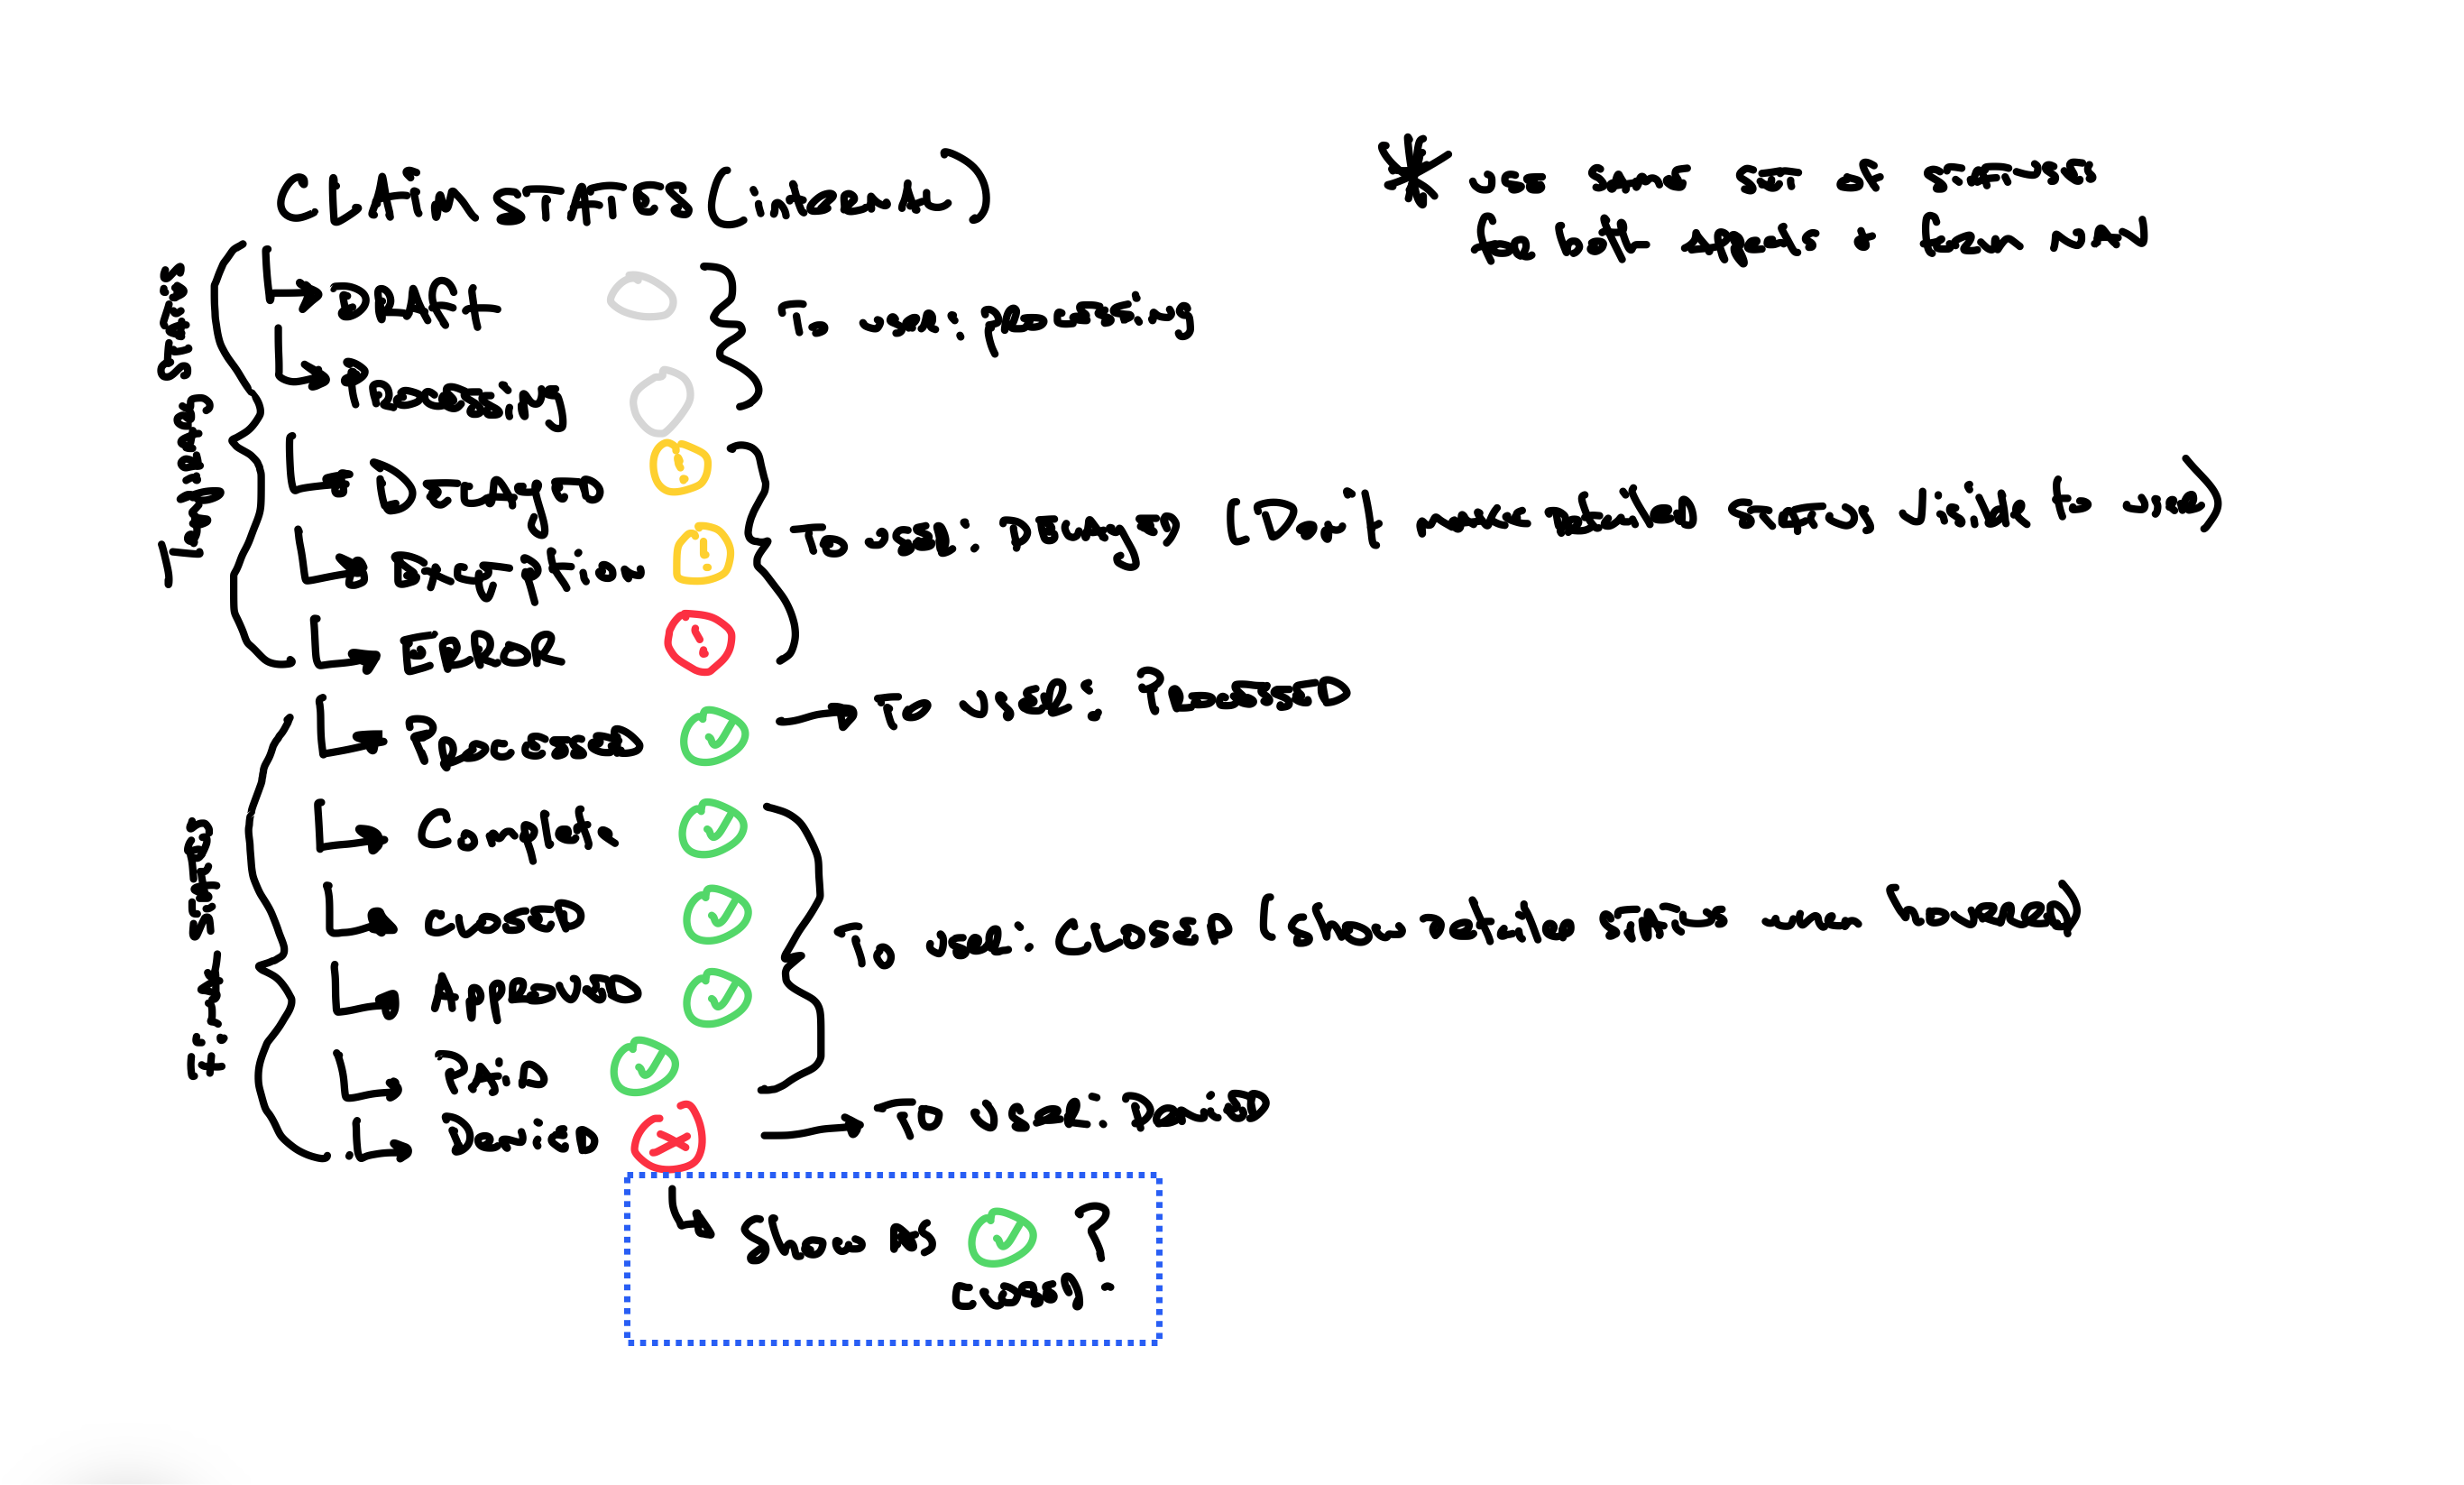 Claim status (internal)
* use same set of statuses
for both appeals & from now
Temporary States
Draft
Processing
To user: processing
Delayed
Exception
Error
To user: Delayed (Don't make detailed status visible to user)
Final states
Processed
To user: Processed
Complete
Closed
Approved
Paid
To user: Closed (show relative status when hovered)
Denied
To user: Denied
Show as ?
closed -